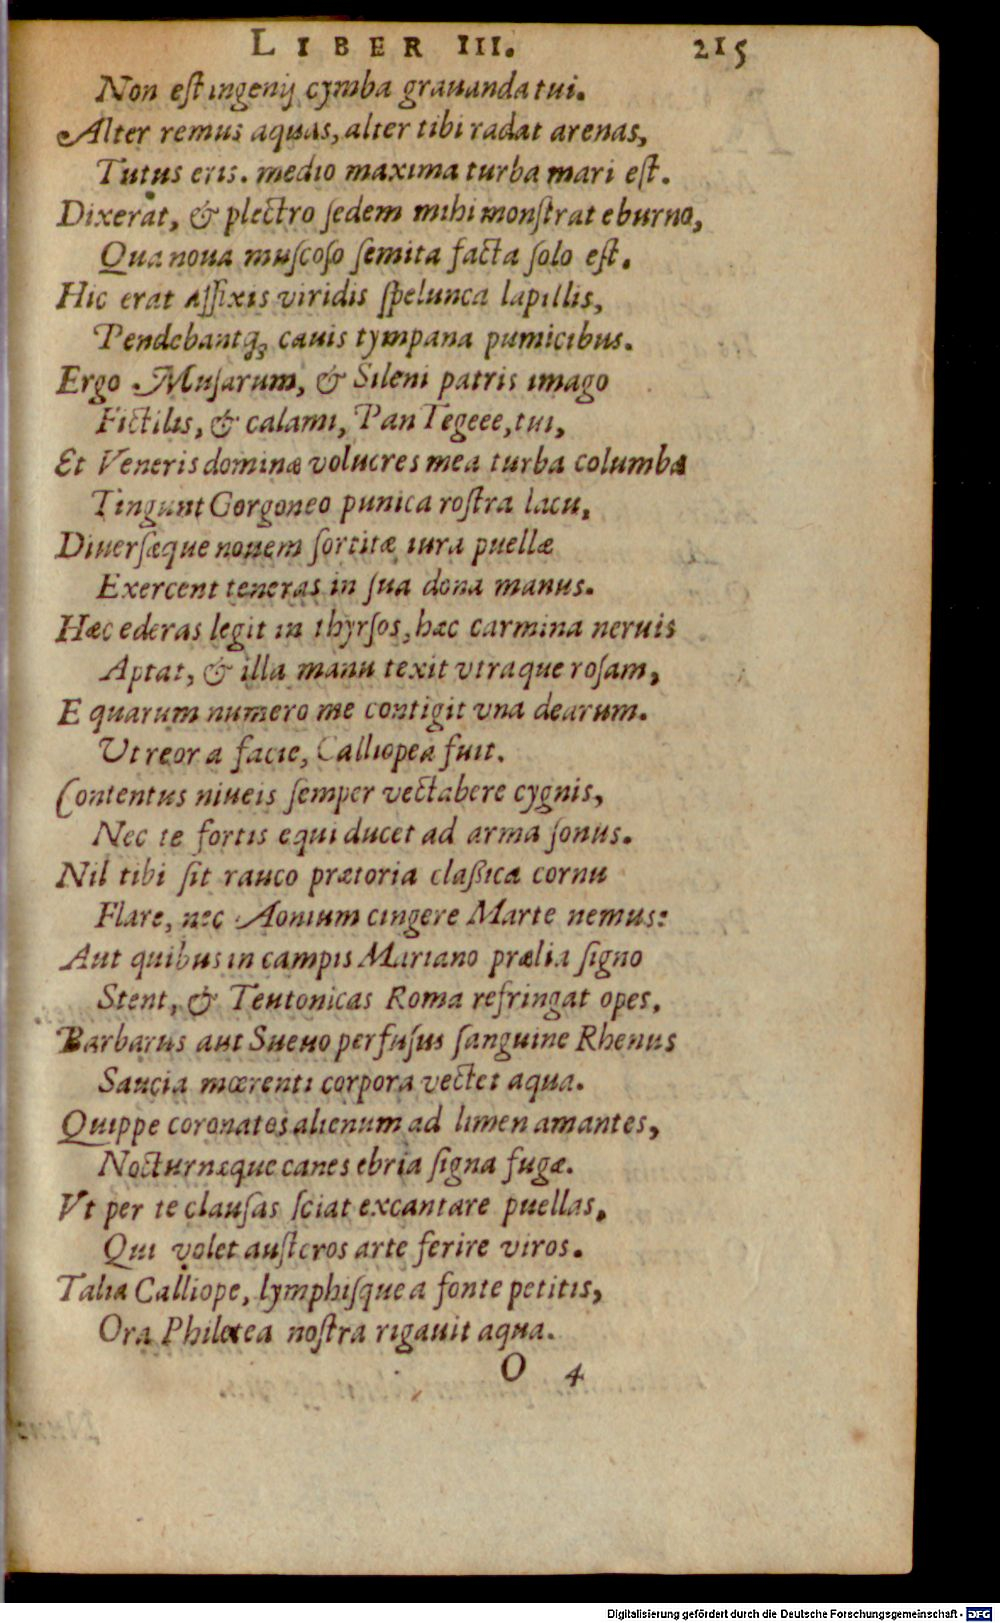 LIBER III. 215
Non est ingenij cymba grauanda tui.
Alter remus aquas, alter tibi radat arenas,
Tutus eris. medio maxima turba mari est.
Dixerat, & plectro sedem mihi monstrat eburno,
Qua noua muscoso semita facta solo est.
Hic erat affixis viridis spelunca lapillis,
Pendebantq́; cauis tympana pumicibus.
Ergo Musarum, & Sileni patris imago
Fictilis, & calami, Pan Tegeee, tui,
Et Veneris dominæ volucres mea turba columba
Tingunt Gorgoneo punica rostra lacu,
Diuersæque nouem sortitæ iura puellæ
Exercent teneras in sua dona manus.
Hæc ederas legit in thyrsos, hæc carmina neruis
Aptat, & illa manu texit vtraque rosam,
E quarum numero me contigit vna dearum.
Ut reor a facie, Calliopea fuit.
Contentus niueis semper vectabere cygnis,
Nec te fortis equi ducet ad arma sonus.
Nil tibi sit rauco prætoria classica cornu
Flare, nec Aonium cingere Marte nemus:
Aut quibus in campis Mariano prælia signo
Stent, & Teutonicas Roma refringat opes,
Barbarus aut Sueuo perfusus sanguine Rhenus
Saucia mœrenti corpora vectet aqua.
Quippe coronatos alienum ad limen amantes,
Nocturnæque canes ebria signa fugæ.
Vt per te clausas sciat excantare puellas,
Qui volet austeros arte ferire viros.
Talia Calliope, lymphisque a fonte petitis,
Ora Philetea nostra rigauit aqua.
O 4
Digitalisierung gefördert durch die Deutsche Forschungsgemeinschaft - DFG